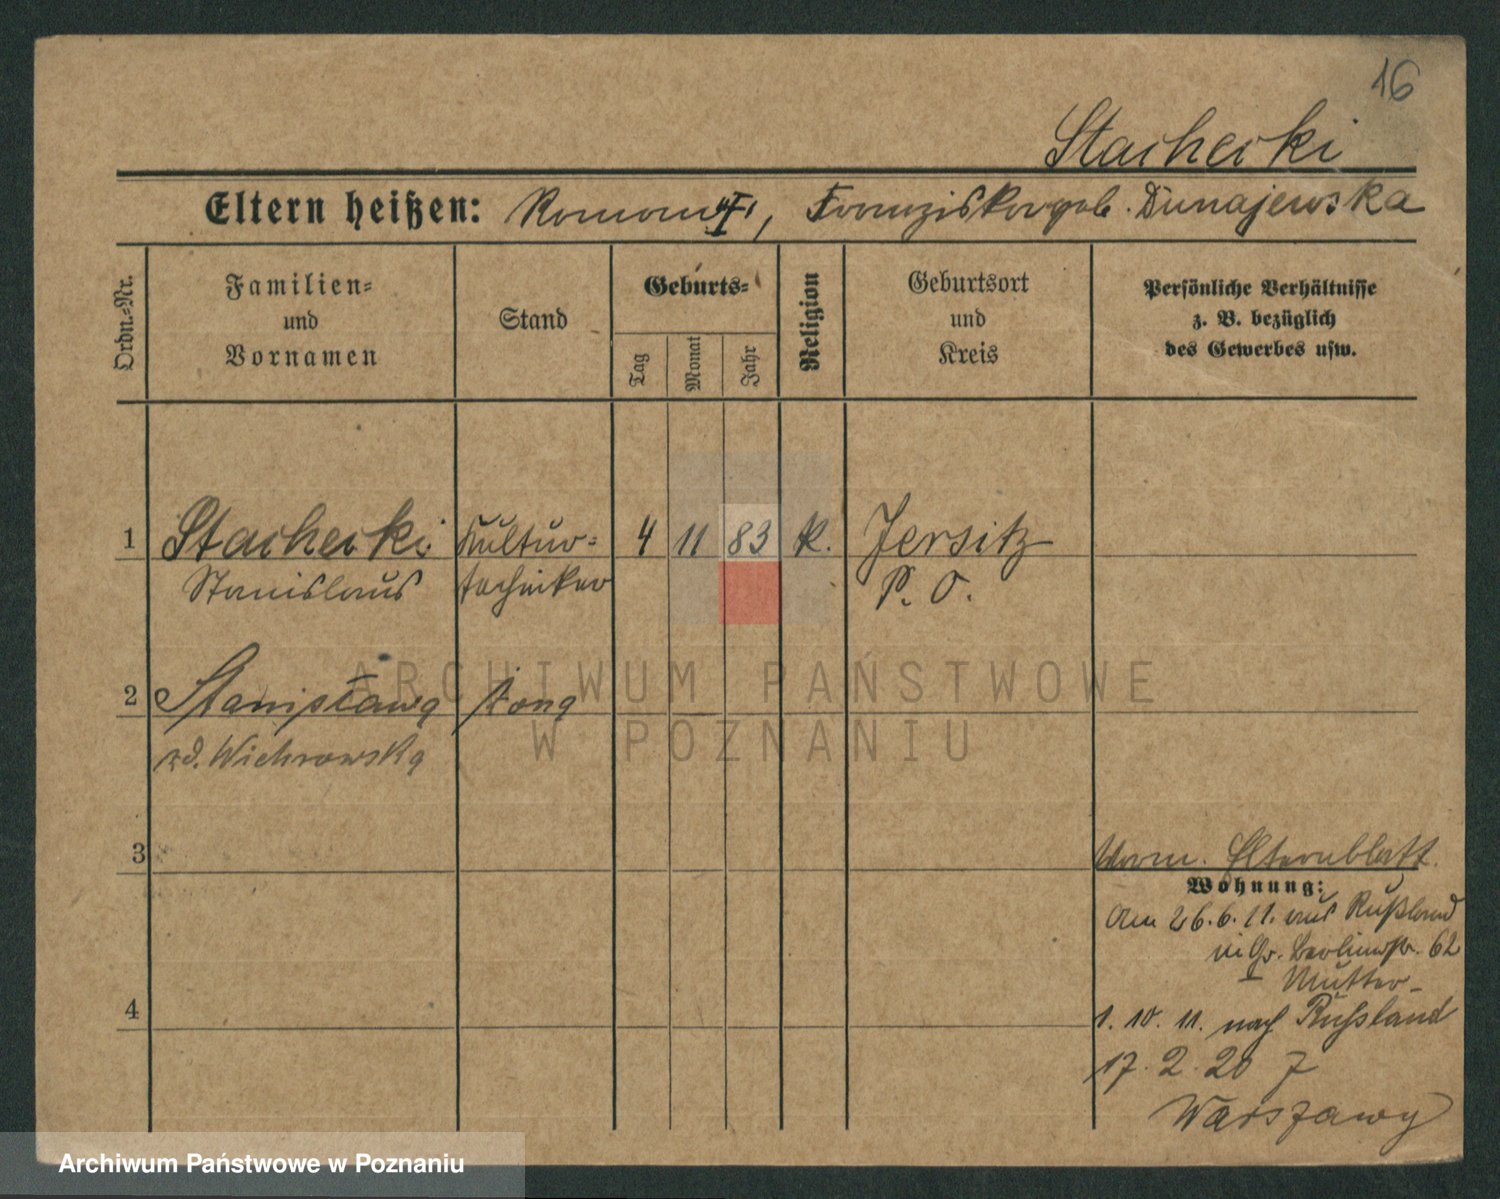 16
Stacherki
Eltern heißen: Roman, Franziska geb. Dunajewska
Ordn.-Nr.
Familien- und Vornamen
Stand
Geburts-
Tag
Monat
Jahr
Religion
Geburtsort und Kreis
Persönliche Verhältnisse
z. B. bezüglich
des Gewerbes usw.
1 Stacherki Kultur- 4 11 83 k. Jersitz
Stanislaus techniker P. O.
2 Stanisława żona
zd. Wichrowska
3
Elternblatt
Wohnung:
Am 26.6.11. aus Rußland
Gr. Berlinerstr. 62
Mutter
4
1. 10. 11. nach Russland
17. 2. 20 z
Warszawy
ARCHIWUM PAŃSTWOWE
W POZNANIU
Archiwum Państwowe w Poznaniu